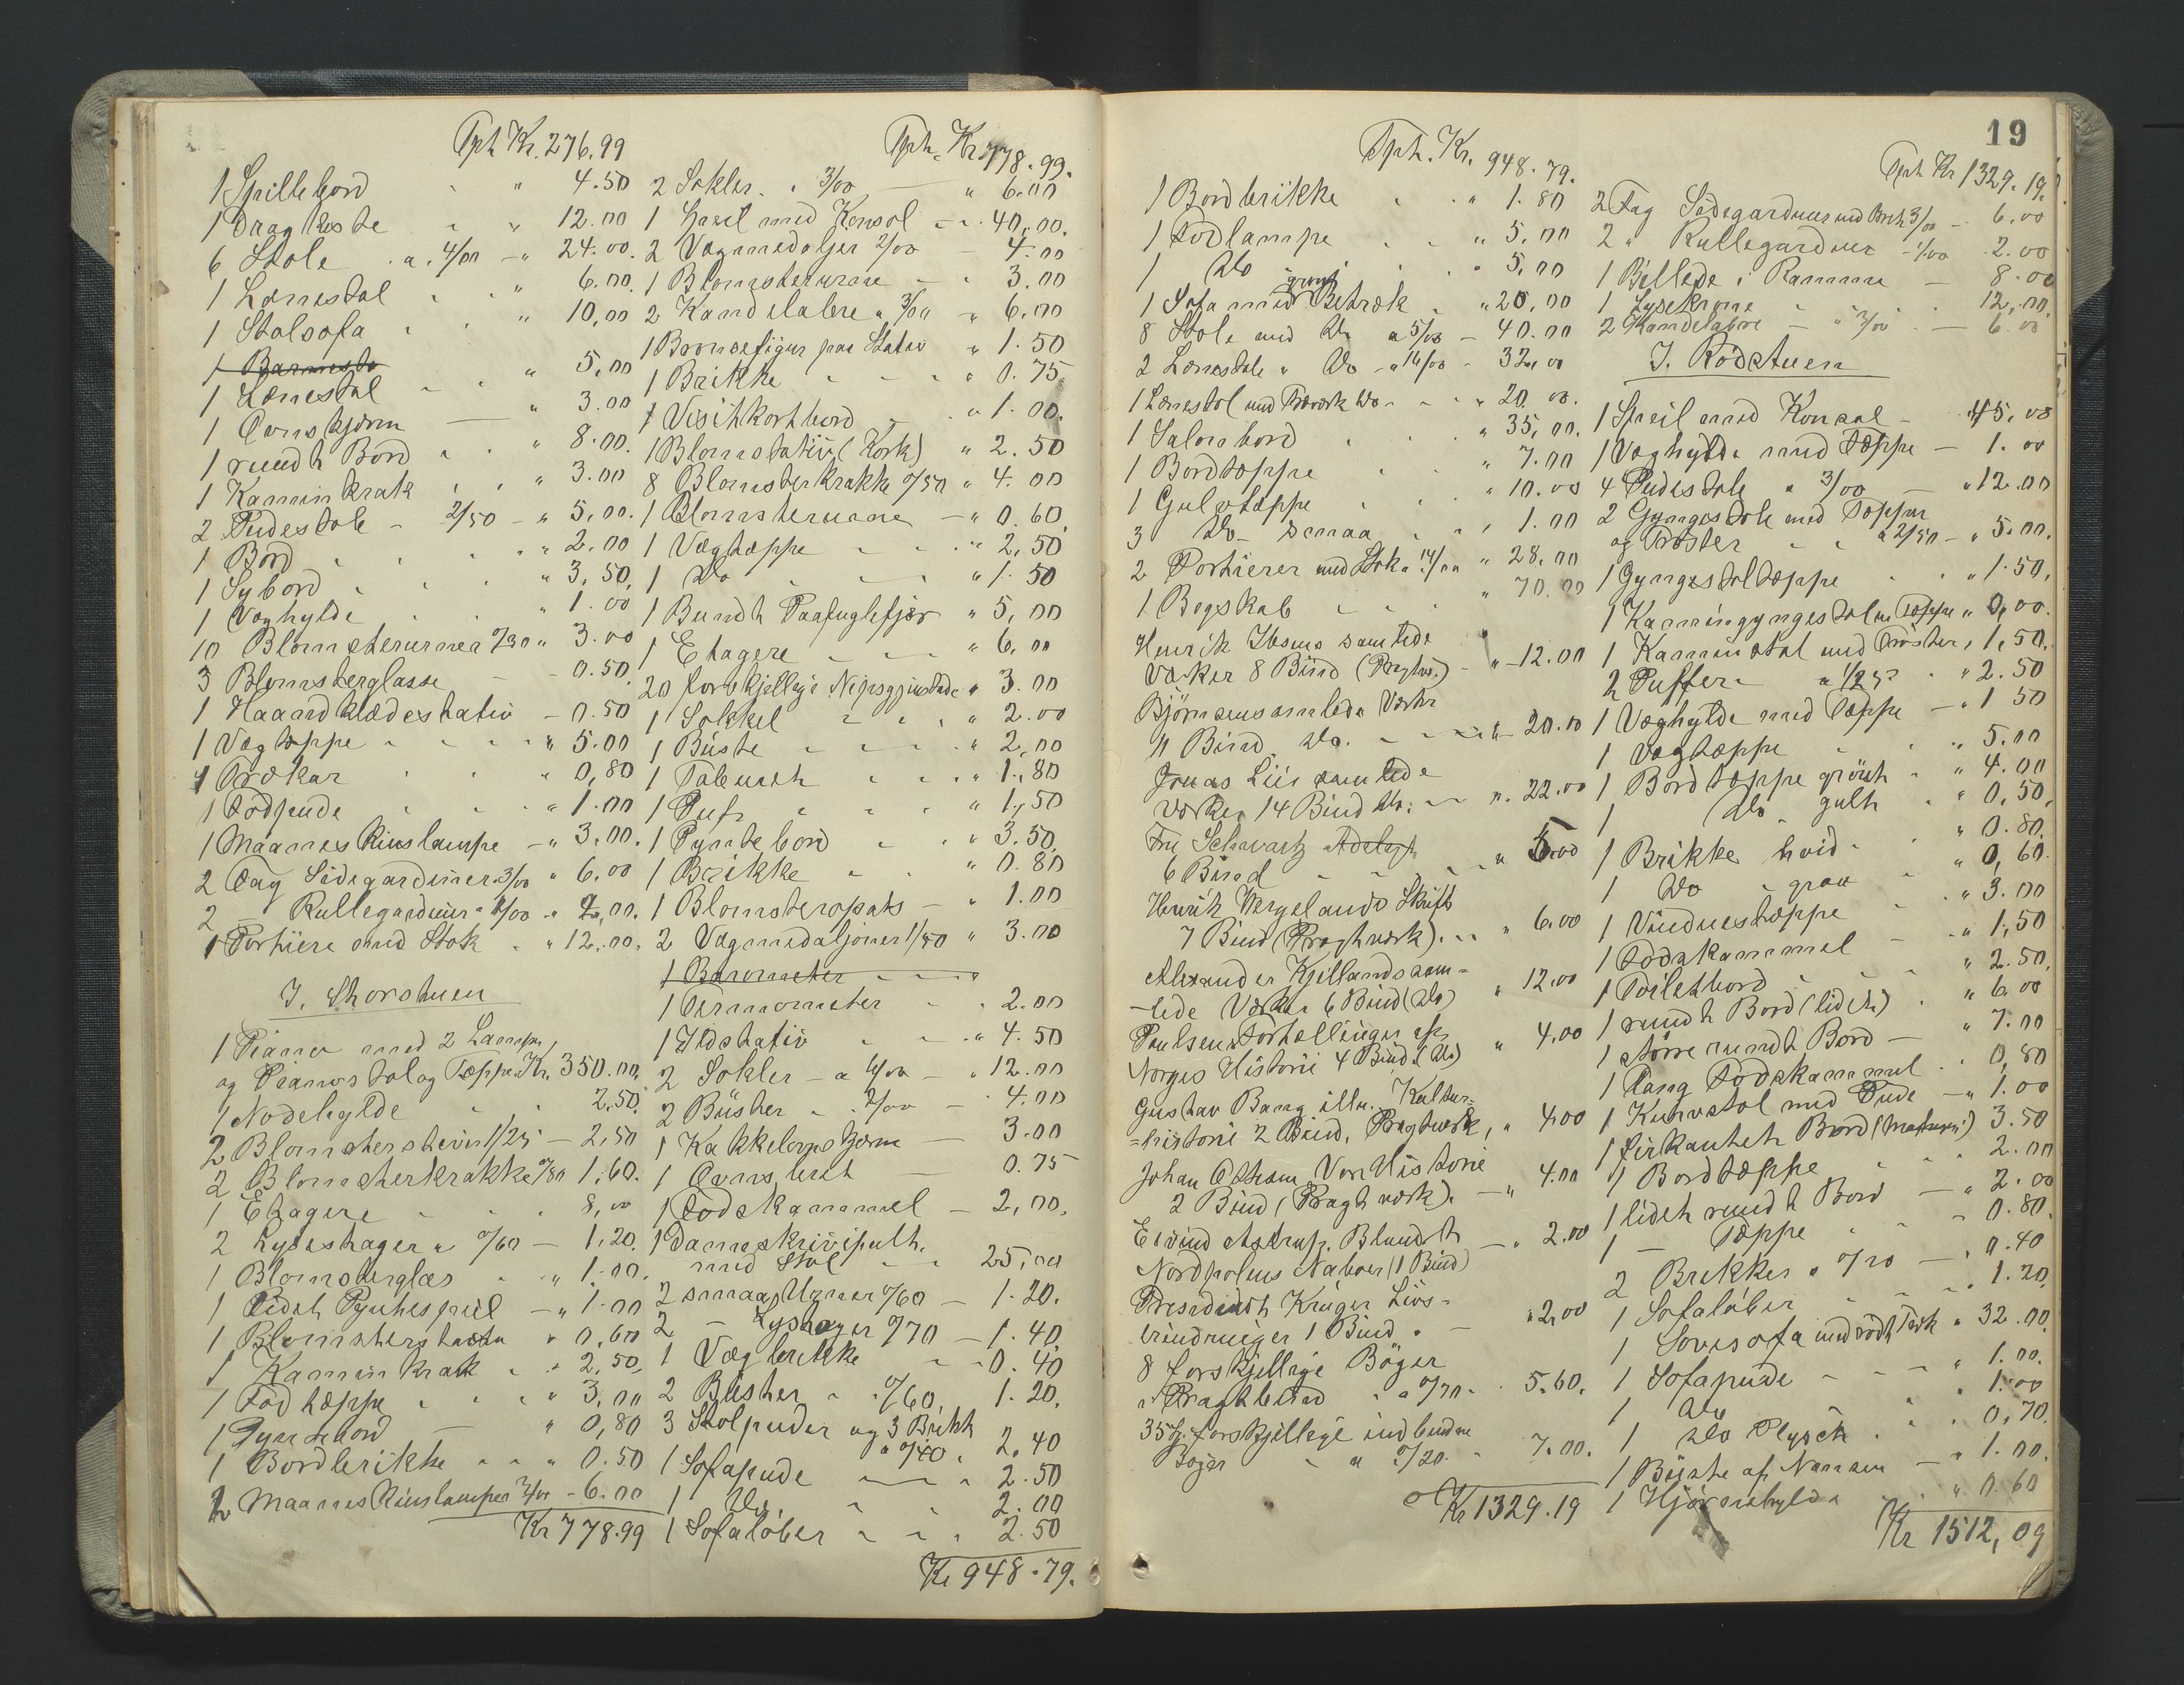 Tph Kr. 276.99
1 Spillebord " 4.50
1 Dragkiste " 12.00
6 Stole a. 4/00 - " 24.00.
1 Lænestol " 6.00.
1 Stolsofa " 10,00
1 Lænestol " 5,00
1 Ovnskjærm " 3.00
1 rundt Bord " 8.00.
1 Kamin krak " 3.00
2 Pudestole - 2/50 - " 5,00.
1 Bord " 2.00
1 Sybord " 3,50,
1 Væghylde " 1.00
10 Blomsterurner a 0/30 " 3.00
3 Blomsterglasse - 0.50
1 Haandklædestativ - 0.50
1 Vægtæppe " 5.00
1 Trækar " 0,80
1 Fodpude " 1.00
1 Maaneskinslampe - " 3,00.
2 Fag Sidegardiner 3/00 " 6,00
2 — Rullegardiner a 1/00 " 2,00.
1 Portiere med Stok " 12,00.
I. Storstuen
1 Piano med 2 Lamper,
og Pianostol og Tæppe Kr. 350.00,
1 Nodehylde 2,50.
2 Blomsterstativ 1/25 — 2,50
2 Blomsterkrakke 0/80 1,60.
1 Etagere 8,00
2 Lysestager a 0/60 — 1,20.
1 Blomsterglas " 1.00.
1 lidet Pyntespeil — " 1.00
1 Blomsterstativ " 0,60
1 Kamin krak " 2,50,
1 Fod tæppe " 3,00
1 Pyntebord — " 0,80
1 Bordbrikke " 0.50
2 Maaneskinslamper 3/00 - 6.00
Kr 778.99
Tph. Kr 778.99.
2 Sokler a 3/00 — " 6.00
1 Speil med Konsol - 40,00.
2 Vægmedaljer 2/00 4.00
1 Blomsterurne 3.00
2 Kandelabre a 3/00 " 6,00
1 Bronsefigur paa Stativ " 1.50
1 Brikke " 0.75
1 Visitkortbord " 1.00.
1 Blomstativ (Kork) " 2.50
8 Blomsterkrakke 0/50 " 4.00
1 Blomstervase — " 0.60
1 Vægtæppe " 2,50
1 Do " 1.50
1 Bundt Paafuglefjær " 5,00
1 Etagere " 6,00
20 forskjellige Nipsgjenstande " 3.00
1 Sokkel " 2.00
1 Büste " 2,00
1 Taburet " 1.80
1 Puf " 1,50
1 Pyntebord " 3.50
1 Brikke " 0.80
1 Blomsteropsats — " 1.00
2 Vægmedaljoner 1/50 " 3.00
1 Barometer
1 Termometer " 2.00
1 Ildstativ " 4.50
2 Sokler — a 6/00 — " 12.00
2 Büster " 2/00 — 4.00
1 Kakkelovnsskjærm — 3.00
1 Ovns bret — 0.75
1 Fodskammel — 2,00,
1 Dameskrivepult
med Stol 25,00
2 smaa Urner 0/60 — 1.20.
2 — Lysstager 0/70 — 1.40
1 Vægbrikke 0.40
2 Büster a 0/60, 1.20.
3 Stolpuder og 3 Brikk
a 0/40 2.40
1 Sofapude 2.50
1 Do. 2.00
1 Sofaløber 2.50
Kr 948.79.
19
Tph. Kr. 948.79.
1 Bordbrikke " 1.80
1 Fodlampe " 5,00
1 Do " 5,00
1 Sofa med grønt Betræk " 20,00
8 Stole med Do a 5/00 — 40.00
2 Lænestole " Do — a 16/00 - 32,00
1 Lænestol med Do - " 20.00.
1 Salonbord " 35,00.
1 Bordtæppe " 7.00
1 Gulvtæppe " 10.00
3 Do— smaa " 1.00
2 Portierer med Stok a 14/00 " 28,00
1 Bogskab " 70.00
Henrik Ibsens samlede
Værker 8 Bind (Pragtv.) - " — 12.00
Bjørnsens samlede Værker
11 Bind. Do. " — 20.00
Jonas Liis samlede
Værker 14 Bind Do: — ". 22.00
Fru Schwartz
6 Bind " 5.00
Henrik Wergelands Skrift
7 Bind (Pragtværk). " 6.00
Alexander Kjellands sam=
-lede Værker 6 Bind (Do) " 12.00
Poulsens Fortellinger af
Norges Historie 4 Bind (Do) " 4,00
Gustav Bang illu. Kultur=
=historie 2 Bind, Pragtværk, " 4.00
Johan Ottosen Vor Historie
2 Bind (Pragtværk). — " 4.00
Eivind Astrup. Blandt
Nordpolens Naboer (1 Bind) — " 2.00
President Krüger Livs-
erindringer 1 Bind. — " 2,00
8 forskjellige Bøger
i Pragtbind a 0/70. 5.60.
35 forskjellige indbundne
Bøger a 0/20. 7.00.
Kr 1329.19
Tph Kr 1329.19.
2 Fag Sidegardiner med Bret 3/00 — 6.00
2 " Rullegardiner - 1/00 2.00
1 Billede i Ramme — 8.00
1 Lysekrone 12,00.
2 Kandelabre — " 3/00 — 6.00
I. Rødstuen
1 Speil med Konsol - 45,00
1 Væghylde med Tæppe — 1.00
4 Pudestole a 3/00 — " 12.00
2 Gyngestole med Tæpper
og Trøster a 2/50 — " 5.00.
1 Gyngestoltæppe " 1.50,
1 Kamingyngestol m Tæppe "
1 Kaminstol med Trøster, 1,50,
2 Puffer a 1/25 " 2.50
1 Væghylde med Tæppe — " 1 50
1 Vægtæppe " 5.00
1 Bordtæppe grønt " 4.00
1 Do gult " 0,50,
1 Brikke hvid " 0.80.
1 Do graa " 0,60.
1 Vinduestæppe " 3.00
1 Fodskammel " 1,50
1 Toiletbord " 2.50,
1 rundt Bord (lidet) " 6.00
1 større rundt Bord — " 7.00
1 lang Fodskammel 0,80
1 Kurvstol med Pude — " 1.00
1 firkantet Bord 3.50
1 Bordtæppe 2.00
1 lidet rundt Bord — " 2.00
1 — Tæppe 0.80.
2 Brikker a 0/20 — 0.40
1 Sofaløber 1.20
1 Sovesofa med rødt Træk " 32.00
1 Sofapude " 1.00.
1 Do 1.00
1 Do Plysch 0,70.
1 Büste af Nansen — " 1.00.
1 Hjørnehylde " 0.60
Kr 1512,09